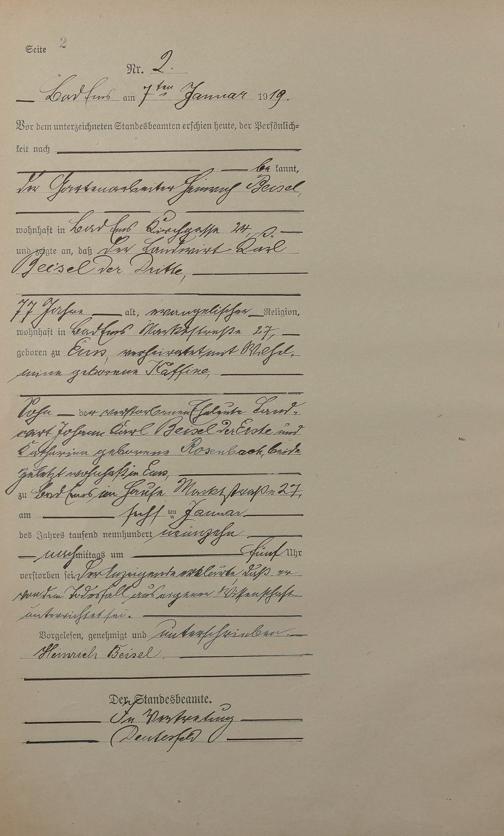 Seite 2
Nr. 2.
Bad Ems am 7ten Januar 1919.
Vor dem unterzeichneten Standesbeamten erschien heute, der Persönlich=
keit nach
be kannt,
der Gartenarbeiter Heinrich Beisel,
wohnhaft in Bad Ems Kirchgasse 24,
und zeigte an, daß der Landwirt Karl
Beisel der Dritte,
77 Jahre alt, evangelischer Religion,
wohnhaft in Bad Ems Marktstraße 27,
geboren zu Ems, verheiratet mit Wilhel-
mine geborene Kaffine,
Sohn der verstorbenen Eheleute Land-
wirt Johann Karl Beisel der Erste und
Katharina geborene Rosenbach, beide
zuletzt wohnhaft in Ems,
zu Bad Ems im Hause Marktstraße 27,
am sechsten Januar
des Jahres tausend neunhundert neunzehn
nachmittags um fünf Uhr
verstorben sei. Der Anzeigende erklärte, daß er
von dem Todesfall aus eigener Wissenschaft
unterrichtet sei.
Vorgelesen, genehmigt und unterschrieben
Heinrich Beisel
Der Standesbeamte.
In Vertretung